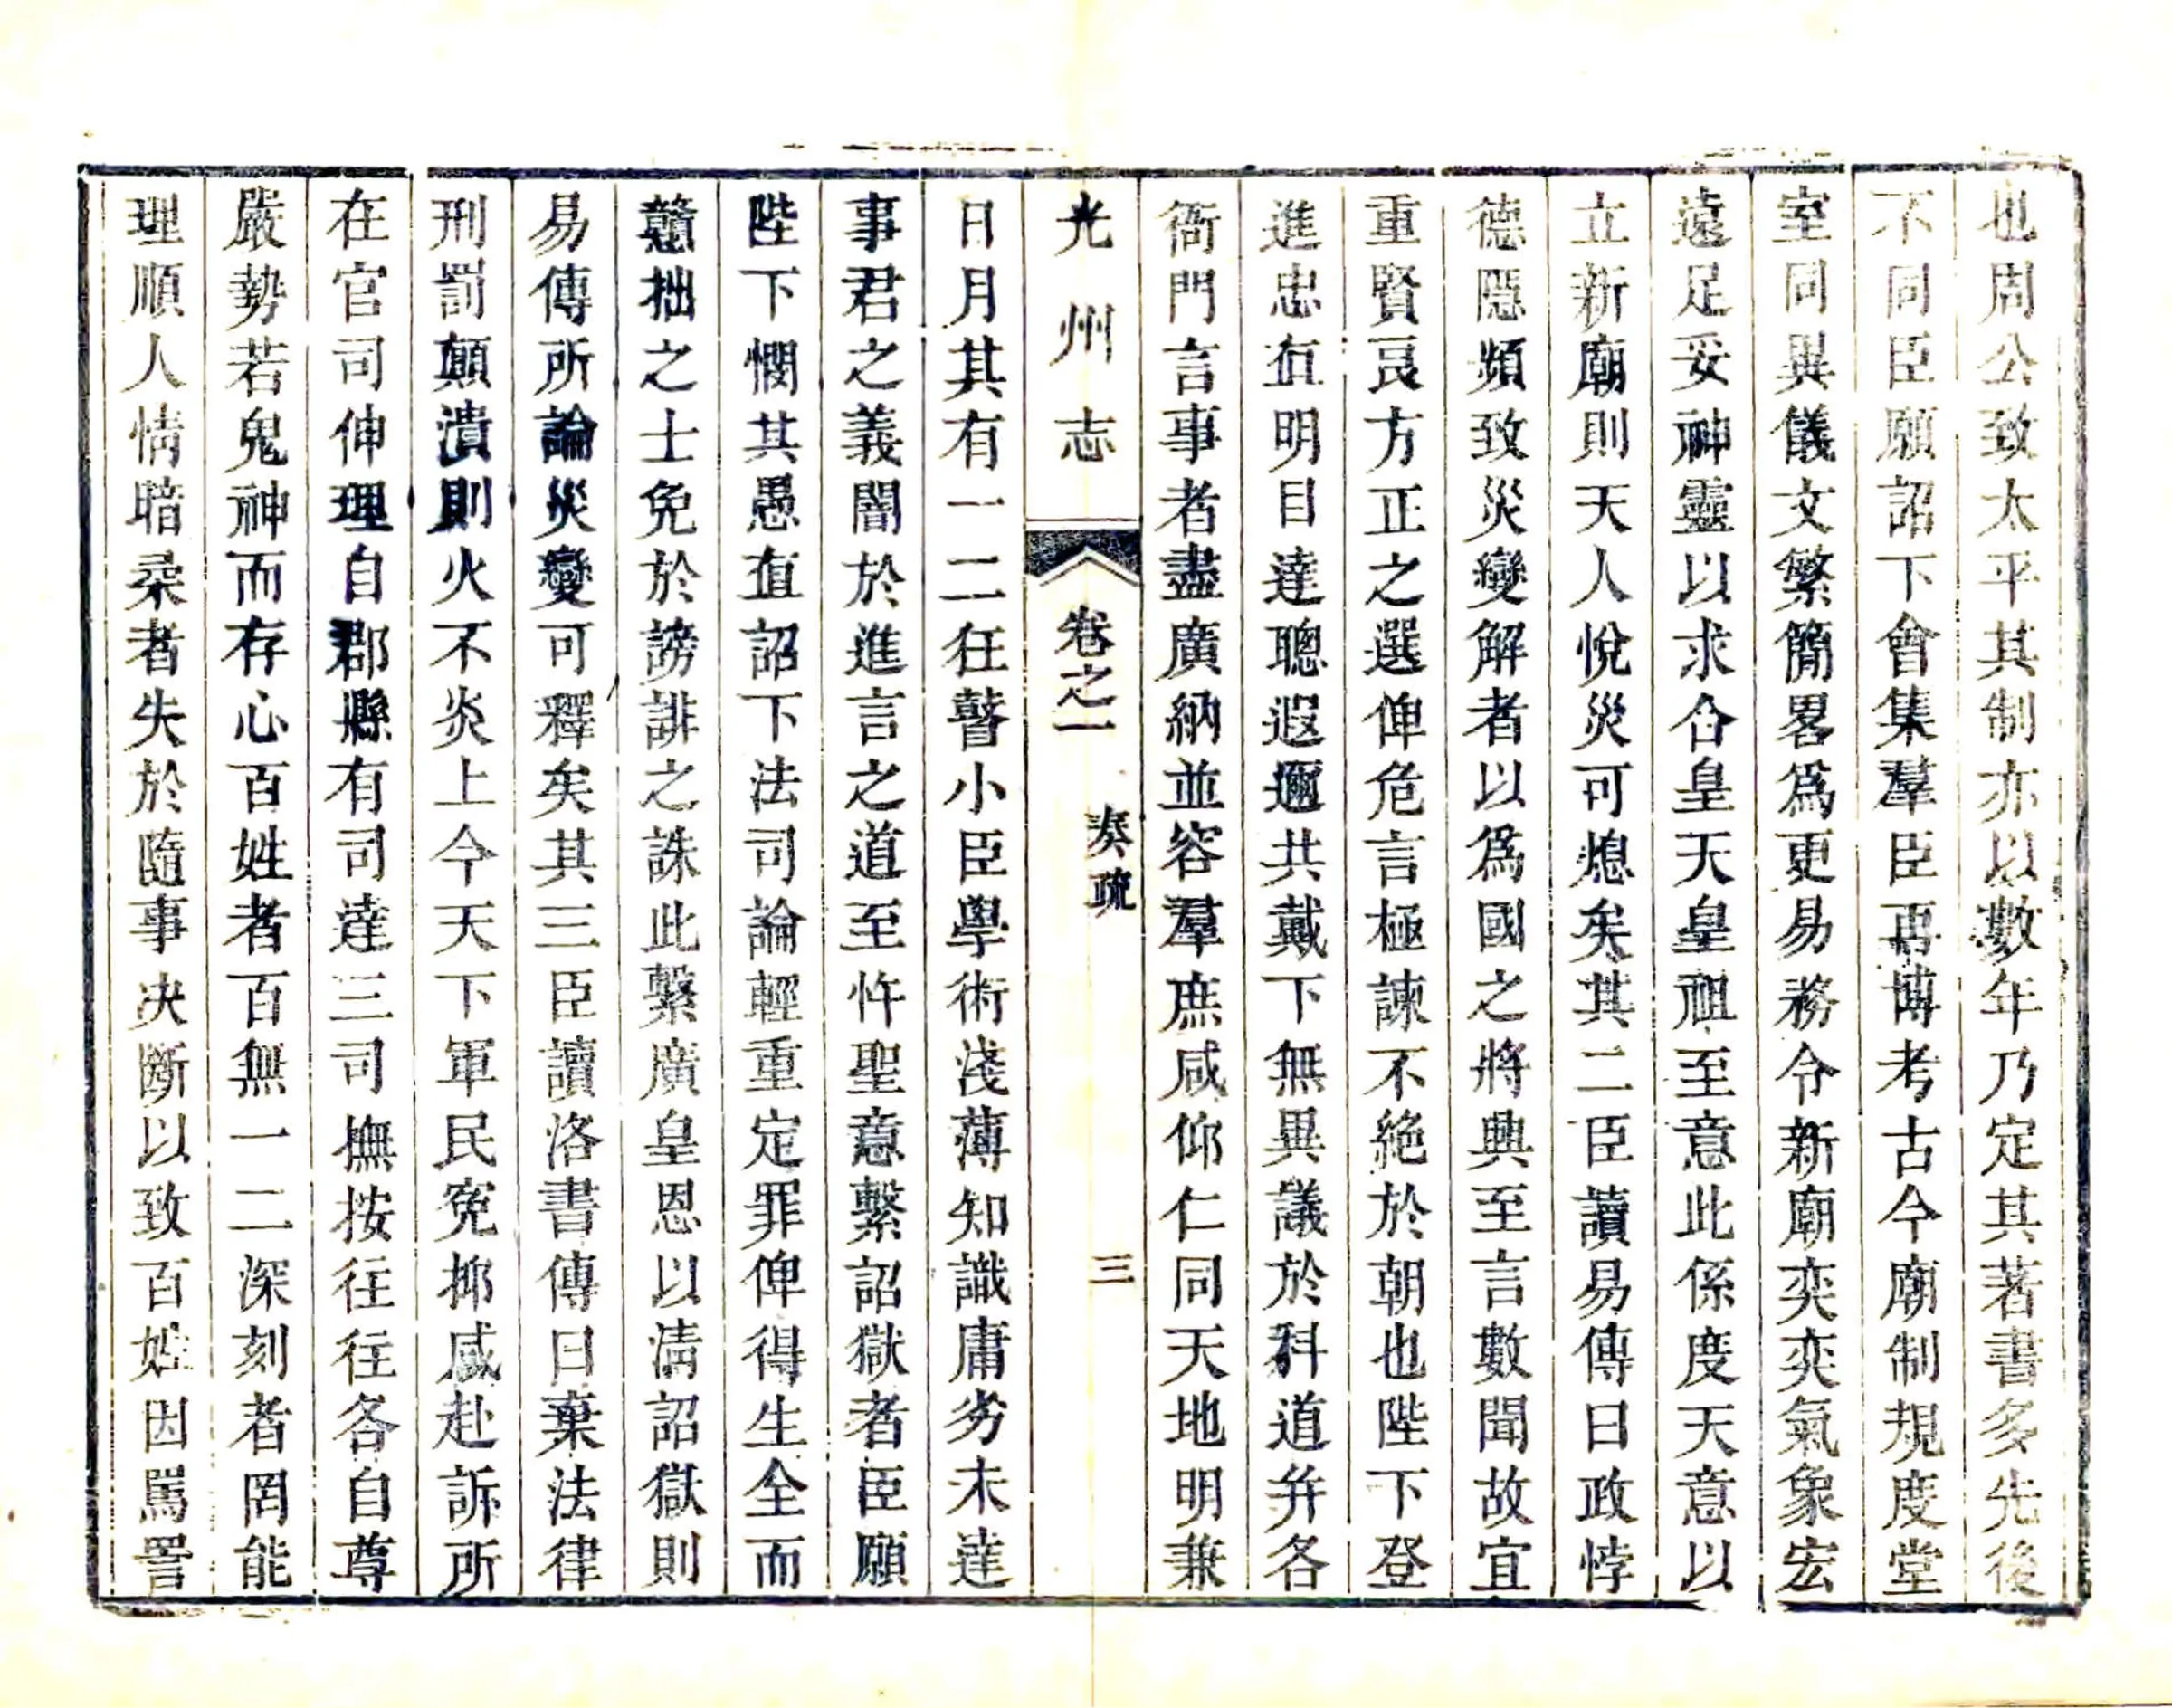 也周公致太平其制亦以數年乃定其著書多先後
不同臣願詔下會集羣臣再博考古今廟制規度堂
室同異儀文繁簡畧爲更易務令新廟奕奕氣象宏
遠足妥神靈以求合皇天皇祖至意此係度天意以
立新廟則天人悅災可熄矣其二臣讀易傳曰政悖
德隱頻致災變解者以爲國之將興至言數聞故宜
重賢良方正之選俾危言極諫不絶於朝也陛下登
進忠直明目達聰遐邇共戴下無異議於科道并各
衙門言事者盡廣納並容羣庶咸仰仁同天地明兼
光州志 卷之一 奏疏 三
日月其有一二狂瞽小臣學術淺薄知識庸劣未達
事君之義闇於進言之道至忤聖意繫詔獄者臣願
陛下憫其愚直詔下法司論輕重定罪俾得生全而
戇拙之士免於謗誹之誅此繫廣皇恩以清詔獄則
易傳所論災變可釋矣其三臣讀洛書傳曰棄法律
刑罰顛潰則火不炎上今天下軍民寃抑咸赴訴所
在官司伸理自郡縣有司達三司撫按往往各自尊
嚴勢若鬼神而存心百姓者百無一二深刻者罔能
理順人情暗柔者失於隨事决斷以致百姓因罵詈